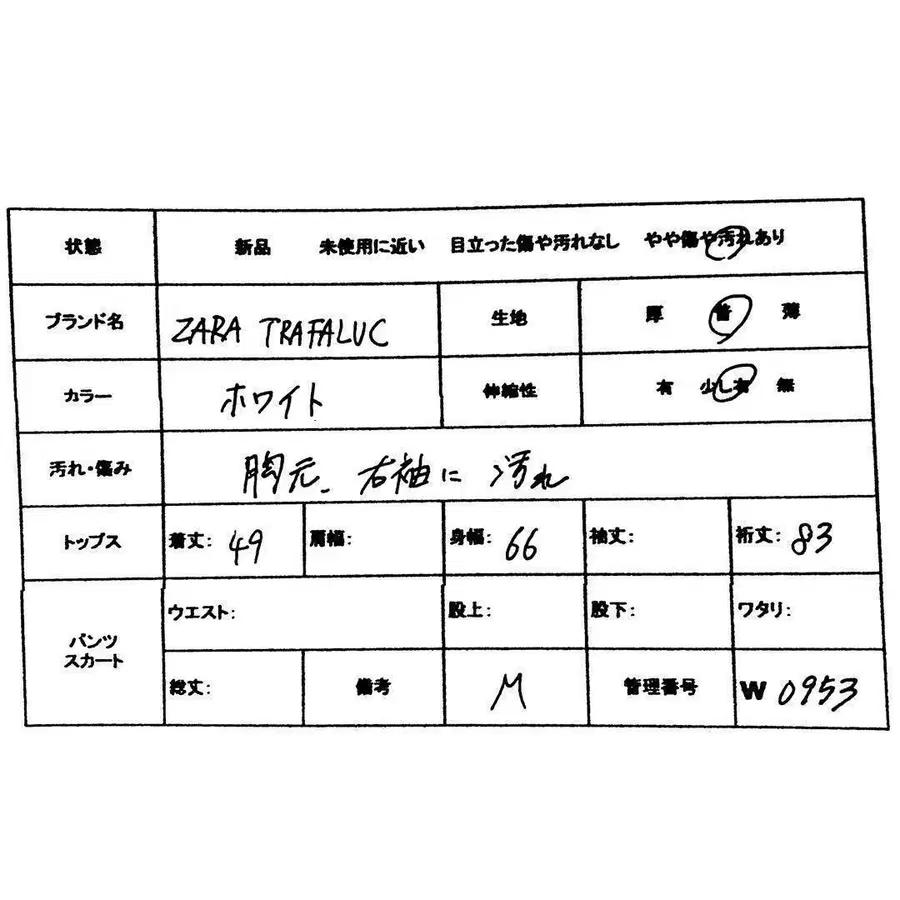 状態 新品 未使用に近い 目立った傷や汚れなし やや傷や汚れあり
ブランド名 ZARA TRAFALUC 生地 厚 普 薄
カラー ホワイト 伸縮性 有 少し有 無
汚れ・傷み 胸元、右袖に汚れ
トップス 着丈: 49 肩幅: 身幅: 66 袖丈: 裄丈: 83
パンツ
スカート
ウエスト: 股上: 股下: ワタリ:
総丈: 備考 M 管理番号 W 0953